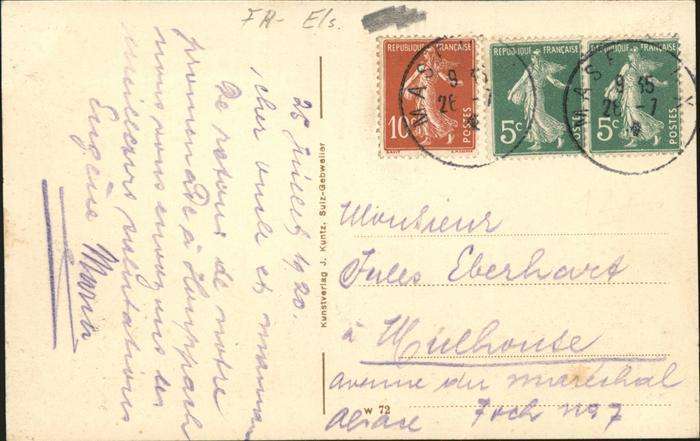 FR- Els.
25 Juillet 1920.
cher oncle et
De retour de notre
promenade à
nous vous envoyons les
meilleures salutations
Eugène Maria
Kunstverlag J. Kuntz, Sulz-Gebweiler
REPUBLIQUE FRANÇAISE
10c
POSTES
REPUBLIQUE FRANÇAISE
5c
POSTES
REPUBLIQUE FRANÇAISE
5c
POSTES
MASE
9 15
26 -7
MASE
9 15
26 -7
Monsieur
Jules Eberhart
à Mulhouse
avenue du maréchal
Alsace Foch No 7
W 72